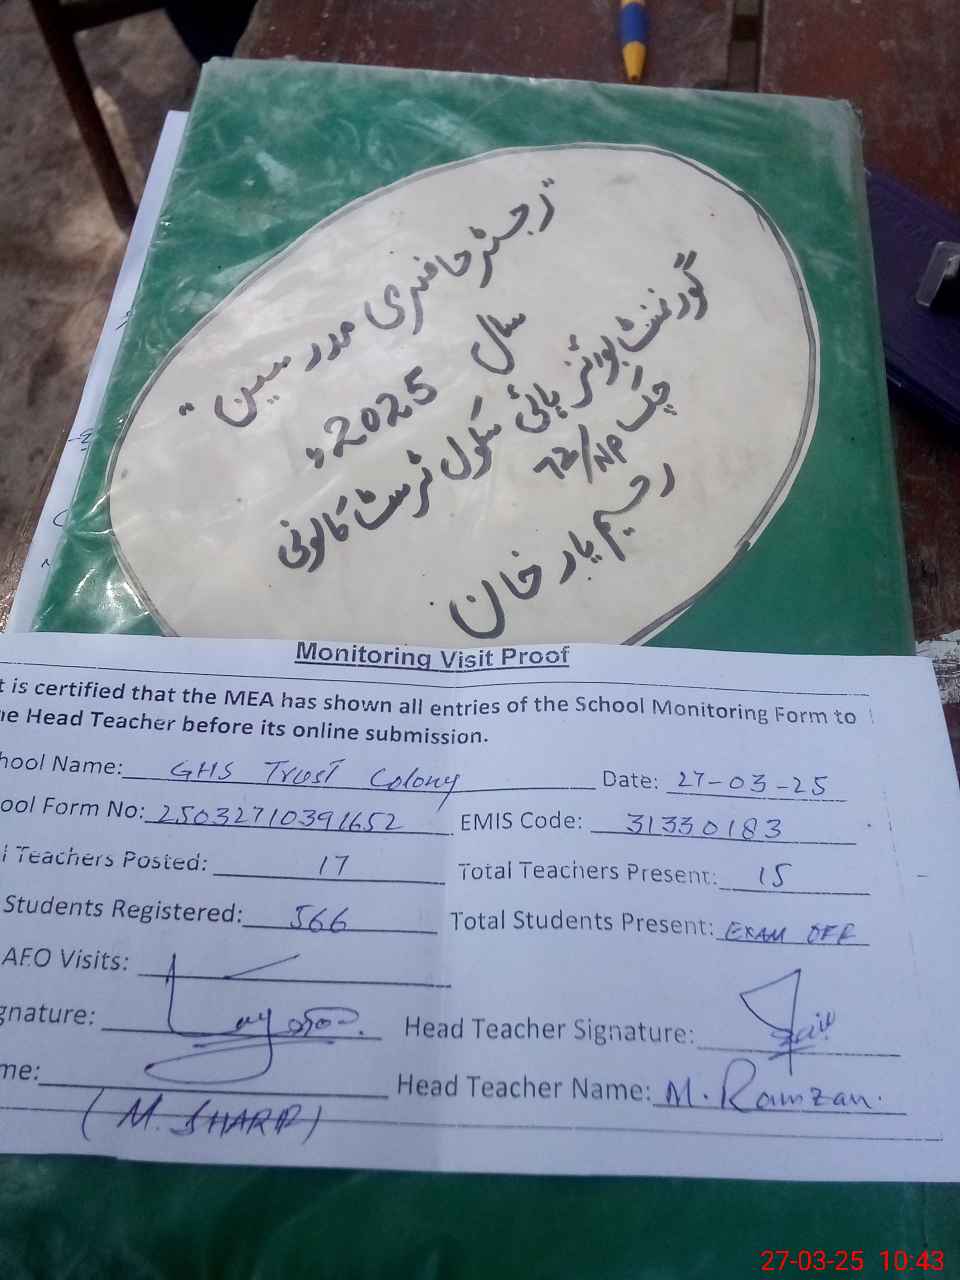 "رجسٹر حاضری مدرسین"
سال 2025ء
گورنمنٹ بوائز ہائی سکول ٹرسٹ کالونی
چک 72/NP
رحیم یار خان
Monitoring Visit Proof
t is certified that the MEA has shown all entries of the School Monitoring Form to
e Head Teacher before its online submission.
hool Name: GHS Trust Colony Date: 27-03-25
ool Form No: 25032710391652 EMIS Code: 31330183
l Teachers Posted: 17 Total Teachers Present: 15
Students Registered: 566 Total Students Present: EXAM OFF
AEO Visits:
gnature: Head Teacher Signature:
me: Head Teacher Name: M. Ramzan.
27-03-25 10:43